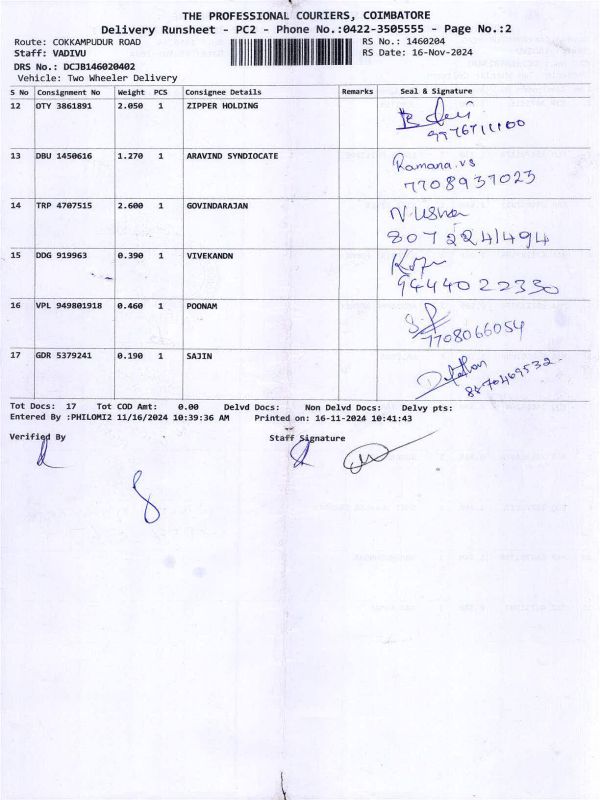 THE PROFESSIONAL COURIERS, COIMBATORE
Delivery Runsheet - PC2 - Phone No.:0422-3505555 - Page No.:2
Route: COKKAMPUDUR ROAD RS No.: 1460204
Staff: VADIVU RS Date: 16-Nov-2024
DRS No.: DCJB146020402
Vehicle: Two Wheeler Delivery
S No Consignment No Weight PCS Consignee Details Remarks Seal & Signature
12 OTY 3861891 2.050 1 ZIPPER HOLDING
13 DBU 1450616 1.270 1 ARAVIND SYNDIOCATE Ramana.vs
7708937023
14 TRP 4707515 2.600 1 GOVINDARAJAN N.Usha
807 2241494
15 DDG 919963 0.390 1 VIVEKANDN
9444022330
16 VPL 949801918 0.460 1 POONAM
7708066054
17 GDR 5379241 0.190 1 SAJIN
Tot Docs: 17 Tot COD Amt: 0.00 Delvd Docs: Non Delvd Docs: Delvy pts:
Entered By :PHILOMI2 11/16/2024 10:39:36 AM Printed on: 16-11-2024 10:41:43
Verified By Staff Signature